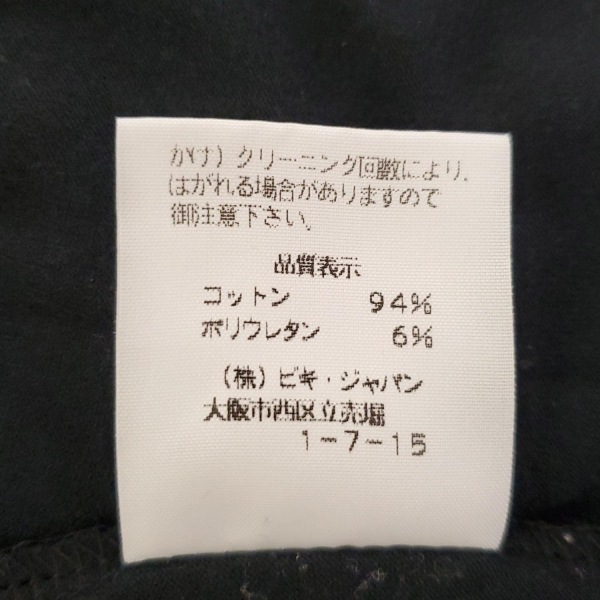 かけ）クリーニング回数により、
はがれる場合がありますので
御注意下さい。
品質表示
コットン 94%
ポリウレタン 6%
（株）ビキ・ジャパン
大阪市西区立売堀
1-7-15